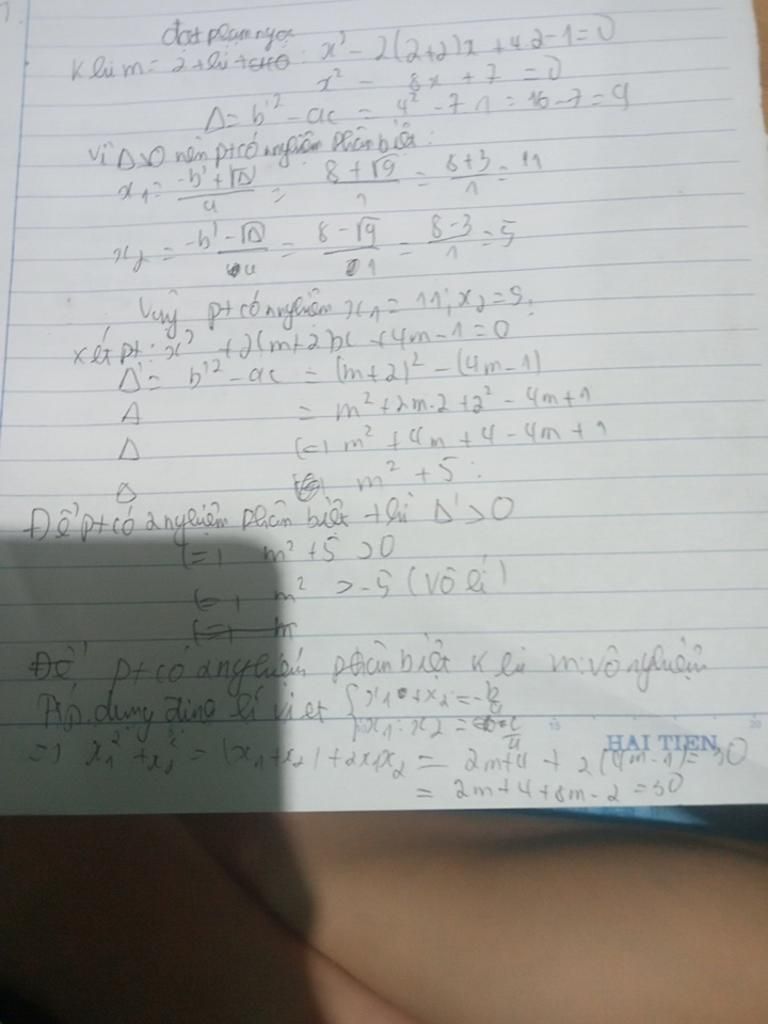 Khi m = 2 thì : x² - 2(2+2)x + 4.2-1=0
x² - 8x + 7 = 0
Δ = b'² - ac = 4² - 7.1 = 16-7=9
Vì Δ>0 nên pt có nghiệm phân biệt :
x₁ = -b'+√Δ / a = 8+√9 / 1 = 8+3 / 1 = 11
x₂ = -b'-√Δ / a = 8-√9 / 1 = 8-3 / 1 = 5
Vậy pt có nghiệm x₁ = 11; x₂ = 5.
xét pt: x² + 2(m+2)x + 4m-1=0
Δ' = b'² - ac = (m+2)² - (4m-1)
Δ = m² + 2m.2 + 2² - 4m + 1
Δ (=) m² + 4m + 4 - 4m + 1
Δ m² + 5 :
Để pt có 2 nghiệm phân biệt thì Δ' > 0
(=) m² + 5 > 0
(=) m² > -5 (vô lí)
(=) m
Để pt có 2 nghiệm phân biệt khi m vô nghiệm
Áp dụng định lí viet { x₁ + x₂ = -b/a
x₁ . x₂ = c/a
HAI TIEN
=) x₁² + x₂² = (x₁+x₂) + 2x₁x₂ = 2m+4 + 2(4m-1) = 30
= 2m+4+8m-2 = 30